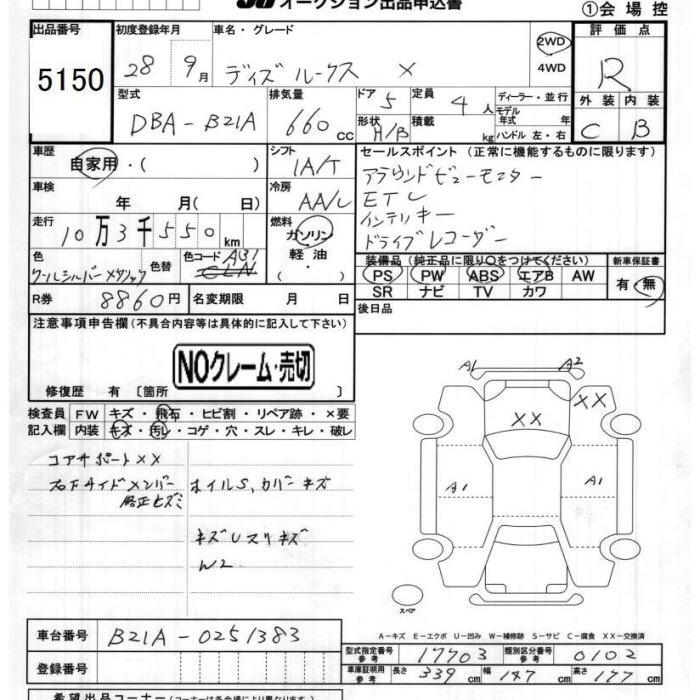 オークション出品申込書
①会場控
出品番号 初度登録年月 車名・グレード 評価点
5150 28 9月 デイズ ルークス X 2WD 4WD R
型式 排気量 ドア 5 定員 4人 ディーラー・並行
DBA-B21A 660cc 形状 H/B 積載 kg モデル年式 年 ハンドル 左・右
外装 内装
C B
車歴 自家用・( ) シフト IA/T
車検 年 月( 日) 冷房 AA/C
走行 10万3千550km 燃料 ガソリン 軽油・( )
色 クールシルバーメタリック 色替 色コード A31
R券 8860円 名変期限 月 日
セールスポイント (正常に機能するものに限ります)
アラウンドビューモニター
ETC
インテリキー
ドライブレコーダー
装備品 (純正品に限り○をつけてください) 新車保証書
PS PW ABS エアB AW 有・無
SR ナビ TV カワ
後日品
注意事項申告欄(不具合内容等は具体的に記入して下さい)
NOクレーム・売切
修復歴 有 〔箇所
検査員 FW キズ・飛石・ヒビ割・リペア跡・×要
記入欄 内装 キズ・汚レ・コゲ・穴・スレ・キレ・破レ
コアサポートXX
右下サイドメンバー ホイルS、カバーキズ
修正ヒズミ
キズ
W2
A1 A2
XX XX
A1 A1
スペア
A-キズ E-エクボ U-凹み W-補修跡 S-サビ C-腐食 XX-交換済
車台番号 B21A-0251383
登録番号
型式指定番号 参考 17703 類別区分番号 参考 0102
車庫証明用 参考 長さ 339cm 幅 147cm 高さ 177cm
希望出品コーナー